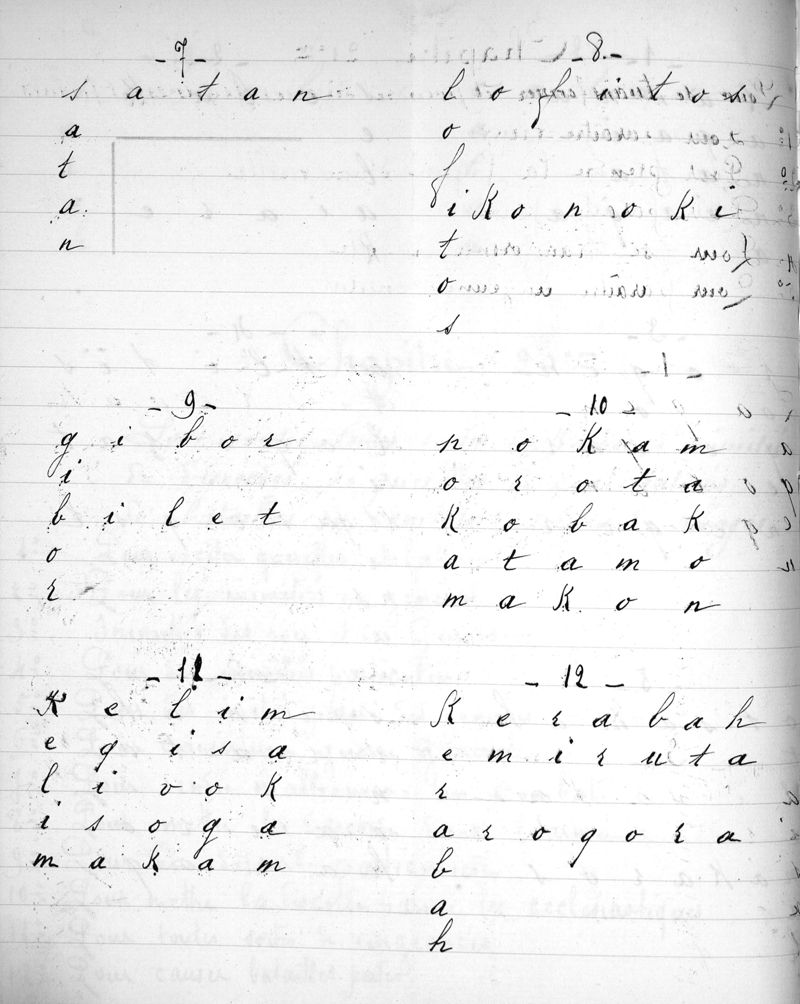 - 7 -
s a t a n
a
t
a
n
- 8 -
l o f i t o s
o
f
i K o n o K i
t
o
s
- 9 -
g i b o r
i
b i l e t
o
r
- 10 -
n o K a m
o r o t a
K o b a K
a t a m o
m a K o n
- 11 -
K e l i m
e g i s a
l i v o K
i s o g a
m a K a m
- 12 -
K e r a b a h
e m i r u t a
r
a r o g o r a
b
a
h